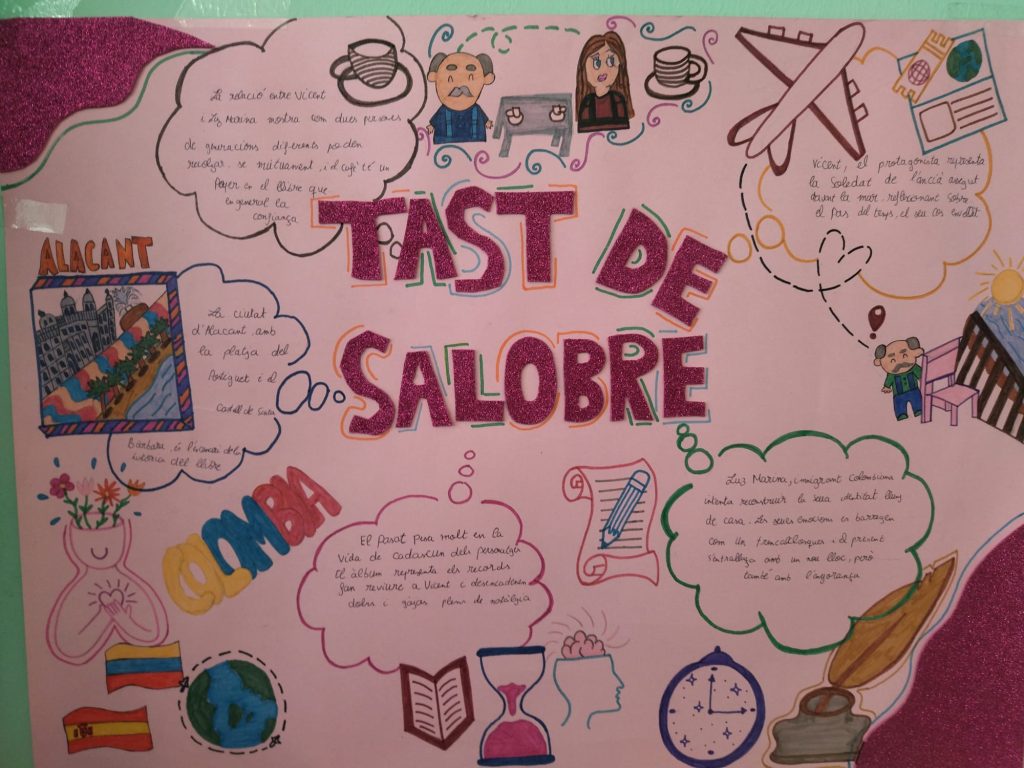 La relació entre Vicent
i Luz Marina mostra com dues persones
de generacions diferents poden
recolzar-se mútuament, i el café té un
paper en el llibre que
en general la
confiança
TAST DE
SALOBRE
Vicent, el protagonista representa
la Soledat de l'ancià assegut
davant la mar, reflexionant sobre
el pas del temps, el seu cos envellit
ALACANT
La ciutat
d'Alacant, amb
la platja del
Postiguet i el
Castell de Santa
Bàrbara, és l'escenari de la
història del llibre
COLOMBIA
El passat pesa molt en la
vida de cadascun dels personatges
L'àlbum representa els records
fan reviure a Vicent i desencadenen
dolors i plens de nostàlgia
Luz Marina, immigrant Colombiana
intenta reconstruir la seua identitat lluny
de casa. Les seues emocions es barregen
com un trencaclosques i el present
s'entrellaça amb un nou lloc, però
també amb l'enyorança